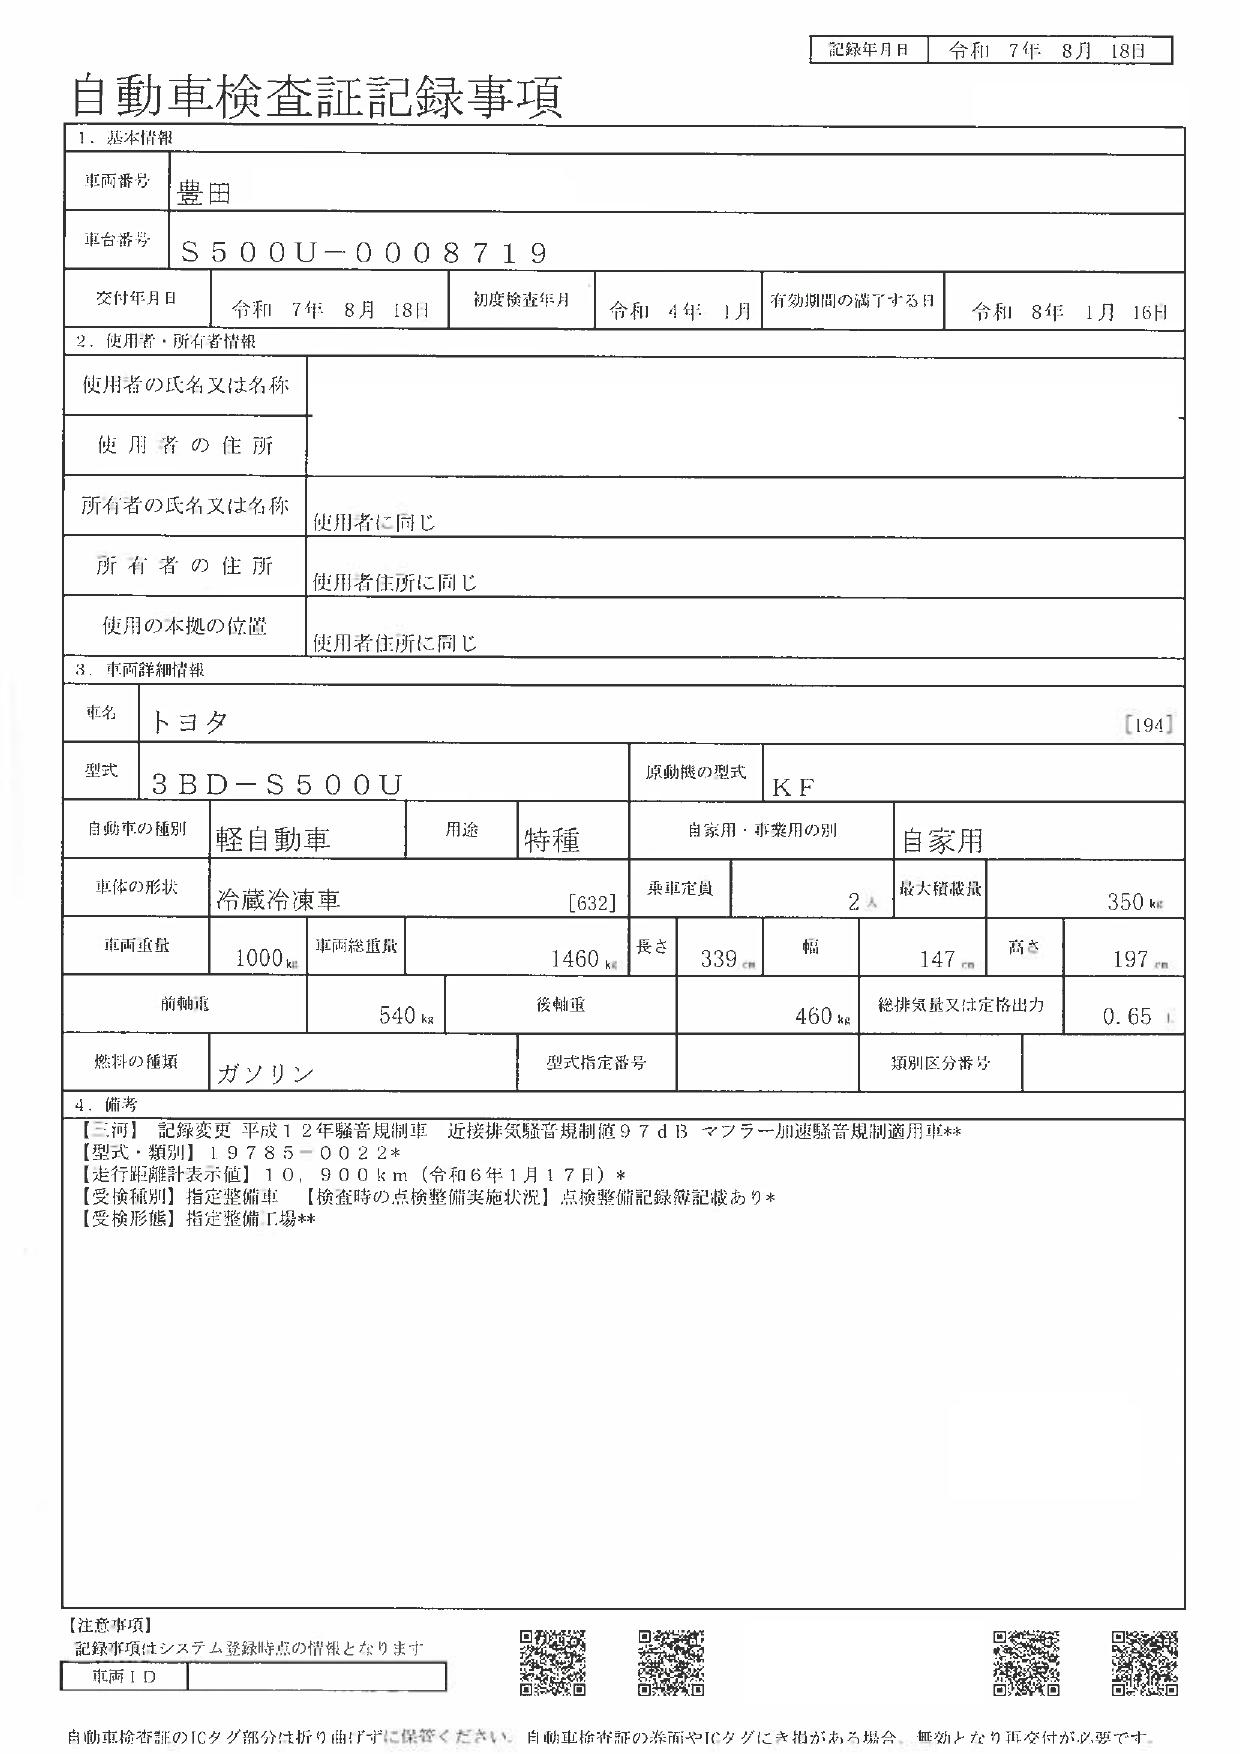 記録年月日 令和 7年 8月 18日
自動車検査証記録事項
1. 基本情報
車両番号 豊田
車台番号 S500U-0008719
交付年月日 令和 7年 8月 18日 初度検査年月 令和 4年 1月 有効期間の満了する日 令和 8年 1月 16日
2. 使用者・所有者情報
使用者の氏名又は名称
使用者の住所
所有者の氏名又は名称 使用者に同じ
所有者の住所 使用者住所に同じ
使用の本拠の位置 使用者住所に同じ
3. 車両詳細情報
車名 トヨタ [194]
型式 3BD-S500U 原動機の型式 KF
自動車の種別 軽自動車 用途 特種 自家用・事業用の別 自家用
車体の形状 冷蔵冷凍車 [632] 乗車定員 2人 最大積載量 350kg
車両重量 1000kg 車両総重量 1460kg 長さ 339cm 幅 147cm 高さ 197cm
前軸重 540kg 後軸重 460kg 総排気量又は定格出力 0.65 L
燃料の種類 ガソリン 型式指定番号 類別区分番号
4. 備考
【三河】 記録変更 平成12年騒音規制車 近接排気騒音規制値97dB マフラー加速騒音規制適用車**
【型式・類別】19785-0022*
【走行距離計表示値】10,900km(令和6年1月17日)*
【受検種別】指定整備車 【検査時の点検整備実施状況】点検整備記録簿記載あり*
【受検形態】指定整備工場**
【注意事項】
記録事項はシステム登録時点の情報となります
車両ID
自動車検査証のICタグ部分は折り曲げずに保管ください。自動車検査証の券面やICタグにき損がある場合、無効となり再交付が必要です。